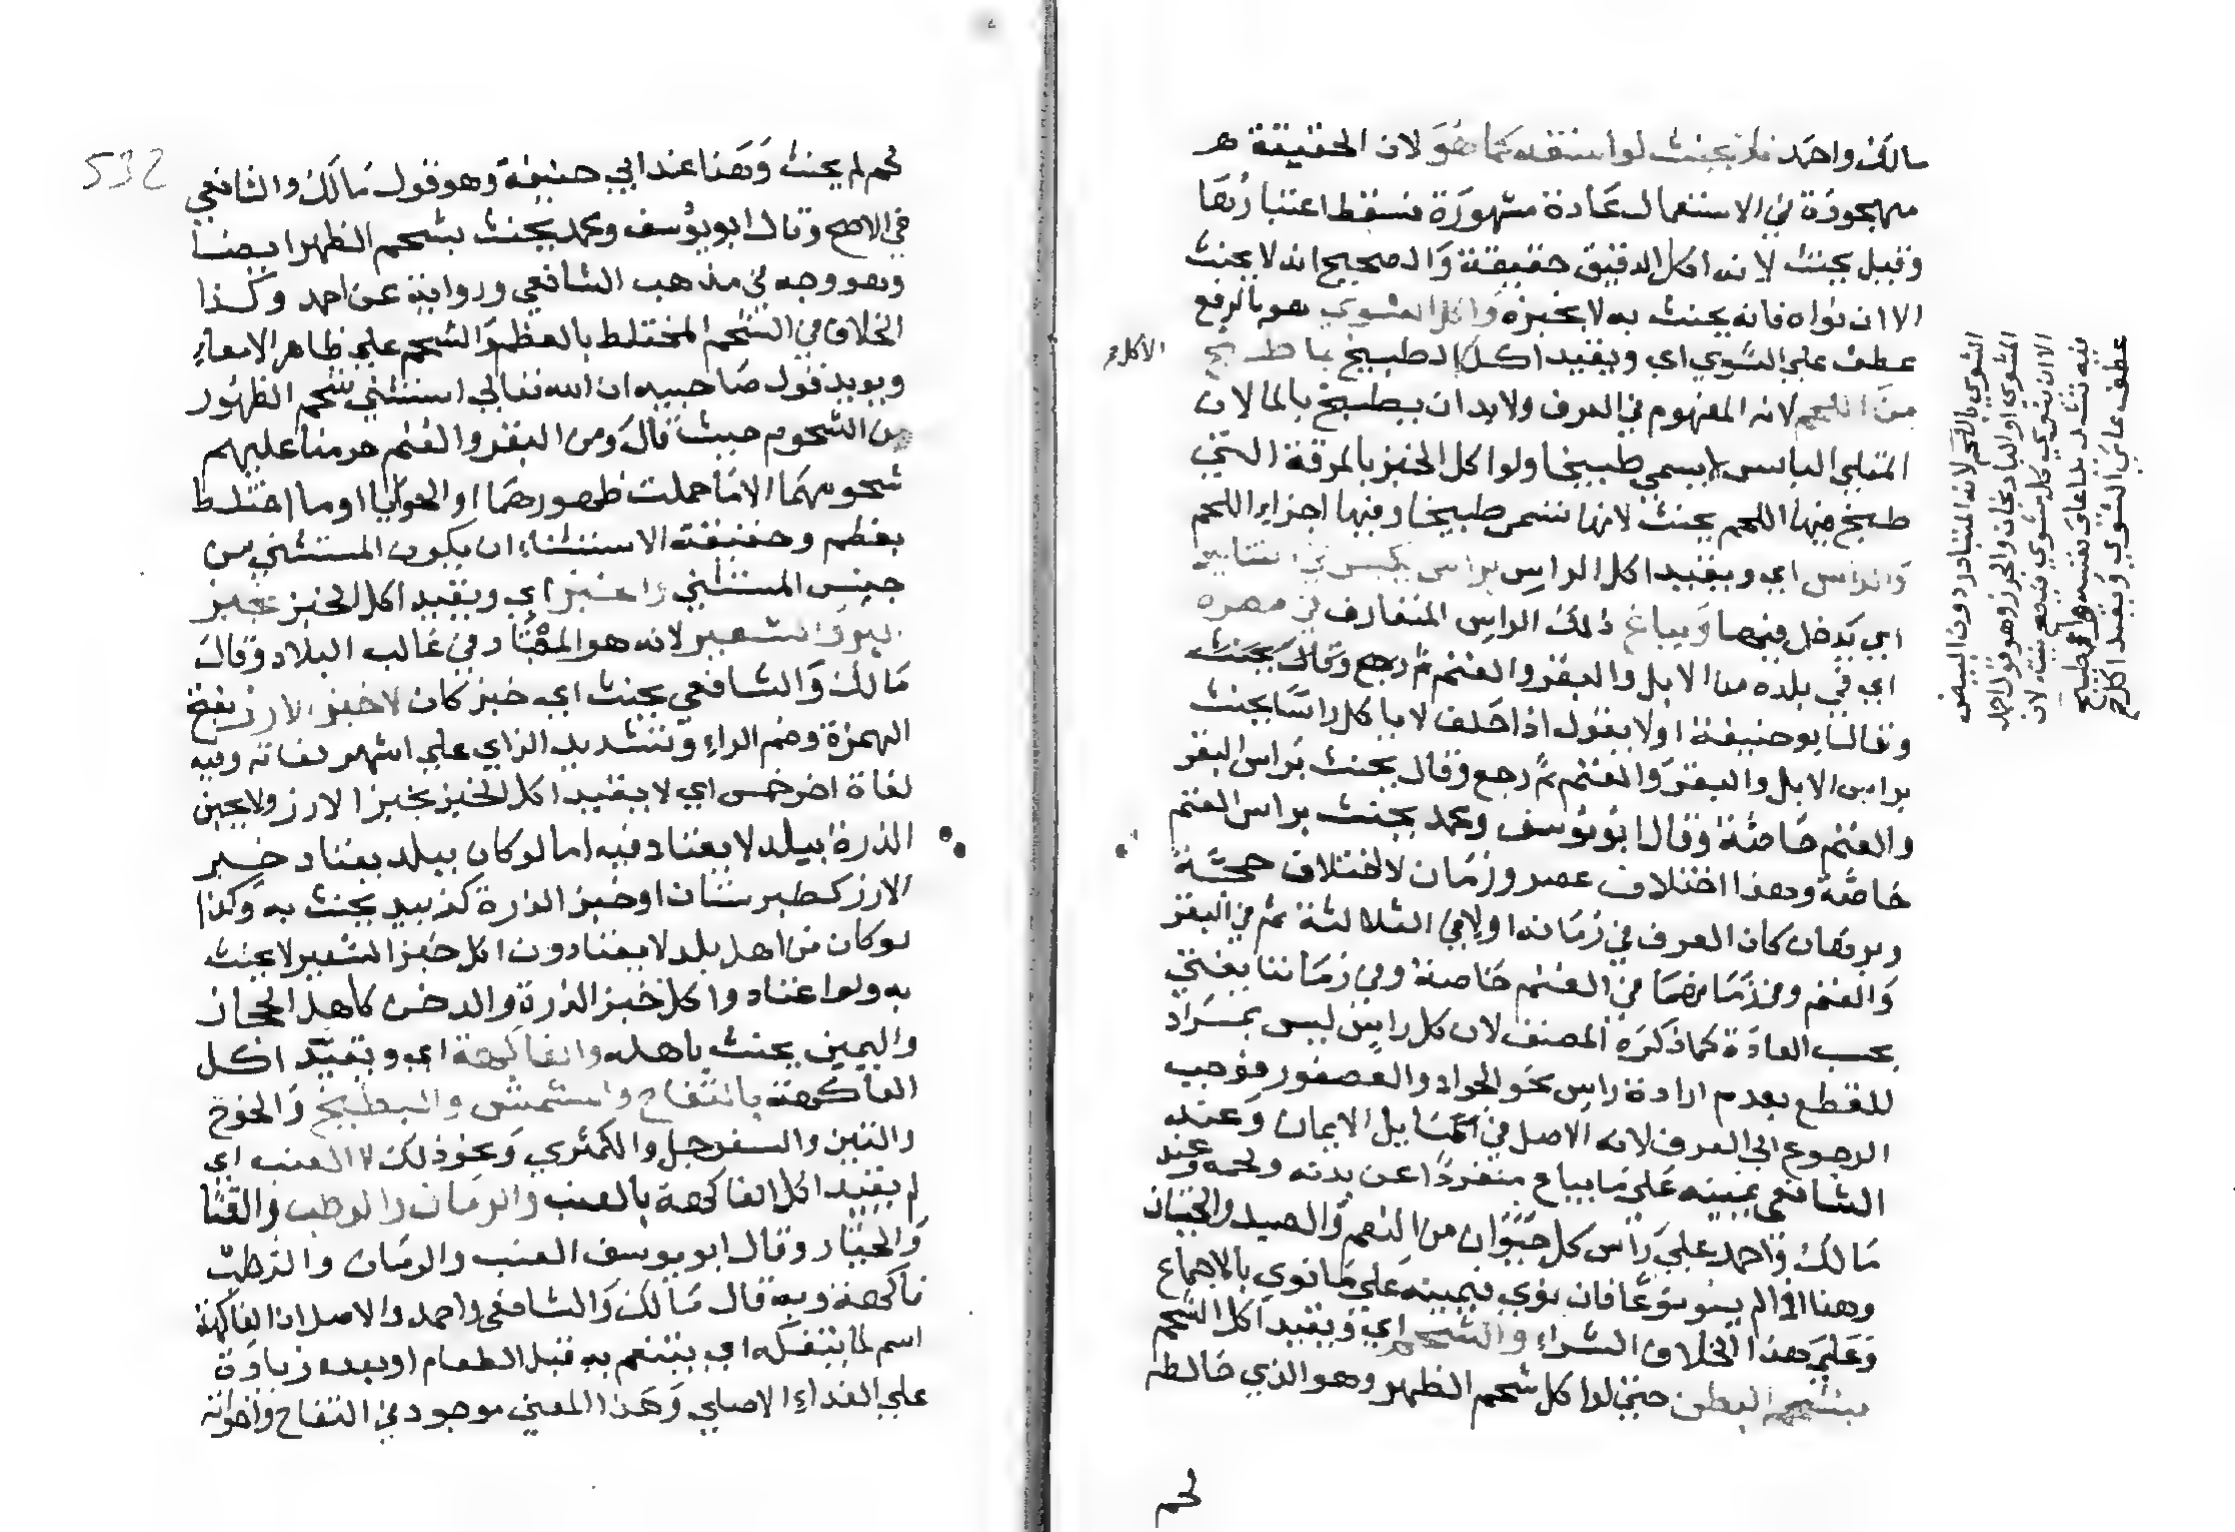 مالك واحمد فلا يحنث لو استفه كما هو لان الحقيقة هـ
مهجورة في الاستعمال عادة مشهورة فسقط اعتبارها
وقيل يحنث لانه اكل الدقيق حقيقة والصحيح انه لا يحنث
الا ان نواه فانه يحنث به لا بخبزه واكل الشوي هو بالرفع
عطف علي الشوي اي ويقيد اكل الطبيخ بما طبخ
من اللحم لانه المفهوم في العرف ولابد ان يطبخ بالما لان
المقلي اليابس لا يسمي طبيخا ولو اكل الخبز بالمرقة التي
طبخ فيها اللحم يحنث لانها تسمى طبيخا وفيها اجزاء اللحم
والراس اي ويقيد اكل الراس براس يكبس في التنانير
اي يدخل فيها ويباع ذلك الراس المتعارف في مصره
اي في بلده من الابل والبقر والغنم ثم رجع وقال يحنث
وقال ابو حنيفة اولا يقول اذا حلف لا ياكل راسا يحنث
براس الابل والبقر والغنم ثم رجع وقال يحنث براس البقر
والغنم خاصة وقال ابو يوسف ومحمد يحنث براس الغنم
خاصة وهذا اختلاف عصر وزمان لا اختلاف حجة
وبرهان كان العرف في زمانه اولا في الثلاثة ثم في البقر
والغنم وفي زمانهما في الغنم خاصة وفي زماننا يفتي
بحسب العادة كما ذكره المصنف لان كل راس ليس بمراد
للقطع بعدم ارادة راس نحو الجراد والعصفور فوجب
الرجوع الي العرف لانه الاصل في مسايل الايمان وعند
الشافعي يمينه علي ما يباع منفردا عن بدنه ولحمه وعند
مالك واحمد علي راس كل حيوان من النعم والصيد والحيتان
وهذا اذا لم ينو نوعا فان نوي فيمينه علي ما نوي بالاجماع
وعلي هذا الخلاف الشراء والشحم اي ويقيد اكل الشحم
بشحم البطن حتي لو اكل شحم الظهر وهو الذي خالطه
لحم
الشوي باللحم لانه المتبادر دون البيض
المشوي او الباذنجان والجزر وهو قول احمد
الا ان ينوي كل مشوي فتعمل نيته لان
فيه تشديدا علي نفسه والطبيخ
عطف علي الشوي ويقيد اكل
لحم لم يحنث وهذا عند ابي حنيفة وهو قول مالك والشافعي
في الاصح وقال ابو يوسف ومحمد يحنث بشحم الظهر ايضا
وهو وجه في مذهب الشافعي ورواية عن احمد وكذا
الخلاف في الشحم المختلط بالعظم والشحم علي ظاهر الامعاء
ويويد قول صاحبيه ان الله تعالي استثني شحم الظهور
من الشحوم حيث قال ومن البقر والغنم حرمنا عليهم
شحومهما الا ما حملت ظهورهما او الحوايا او ما اختلط
بعظم وحقيقة الاستثناء ان يكون المستثني من
جنس المستثني والخبز اي ويقيد اكل الخبز بخبز
البر والشعير لانه هو المعتاد في غالب البلاد وقال
مالك والشافعي يحنث اي خبز كان لا خبز الارز بفتح
الهمزة وضم الراء وتشديد الزاي علي اشهر لغاته وفيه
لغاة اخر خمس اي لا يقيد اكل الخبز بخبز الارز ولا بخبز
الذرة ببلد لا يعتاد فيه اما لو كان ببلد يعتاد خبز
الارز كطبرستان او خبز الذرة كزبيد يحنث به وكذا
لو كان من اهل بلد لا يعتادون اكل خبز الشعير لا يحنث
به ولو اعتادوا كل خبز الذرة والدخن كاهل الحجاز
واليمن يحنث باهله والفاكهة اي وتقيد اكل
الفاكهة بالتفاح والمشمش والبطيخ والخوخ
والتين والسفرجل والكمثري ونحو ذلك لا العنب اي
لم يقيد اكل الفاكهة بالعنب والرمان والرطب والقثا
والخيار وقال ابو يوسف العنب والرمان والرطب
فاكهة وبه قال مالك والشافعي واحمد والاصل ان الفاكهة
اسم لما يتفكه اي يتنعم به قبل الطعام او بعده زيادة
علي الغداء الاصلي وهذا المعني موجود في التفاح واخواته
532